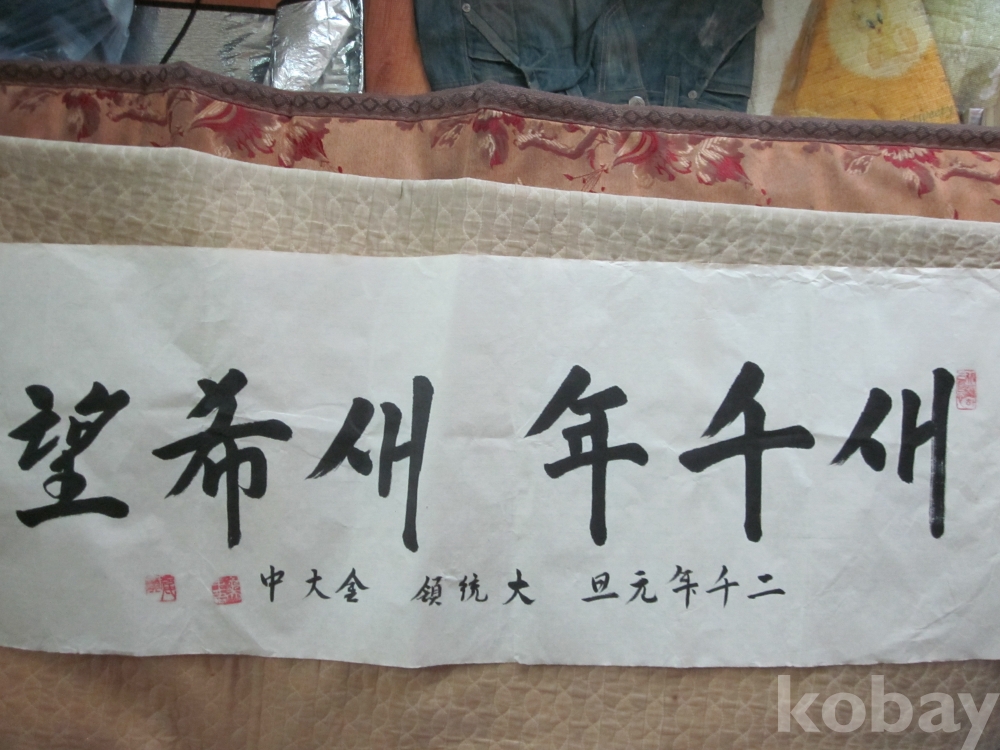 새千年 새希望
二千年元旦 大統領 金大中
kobay